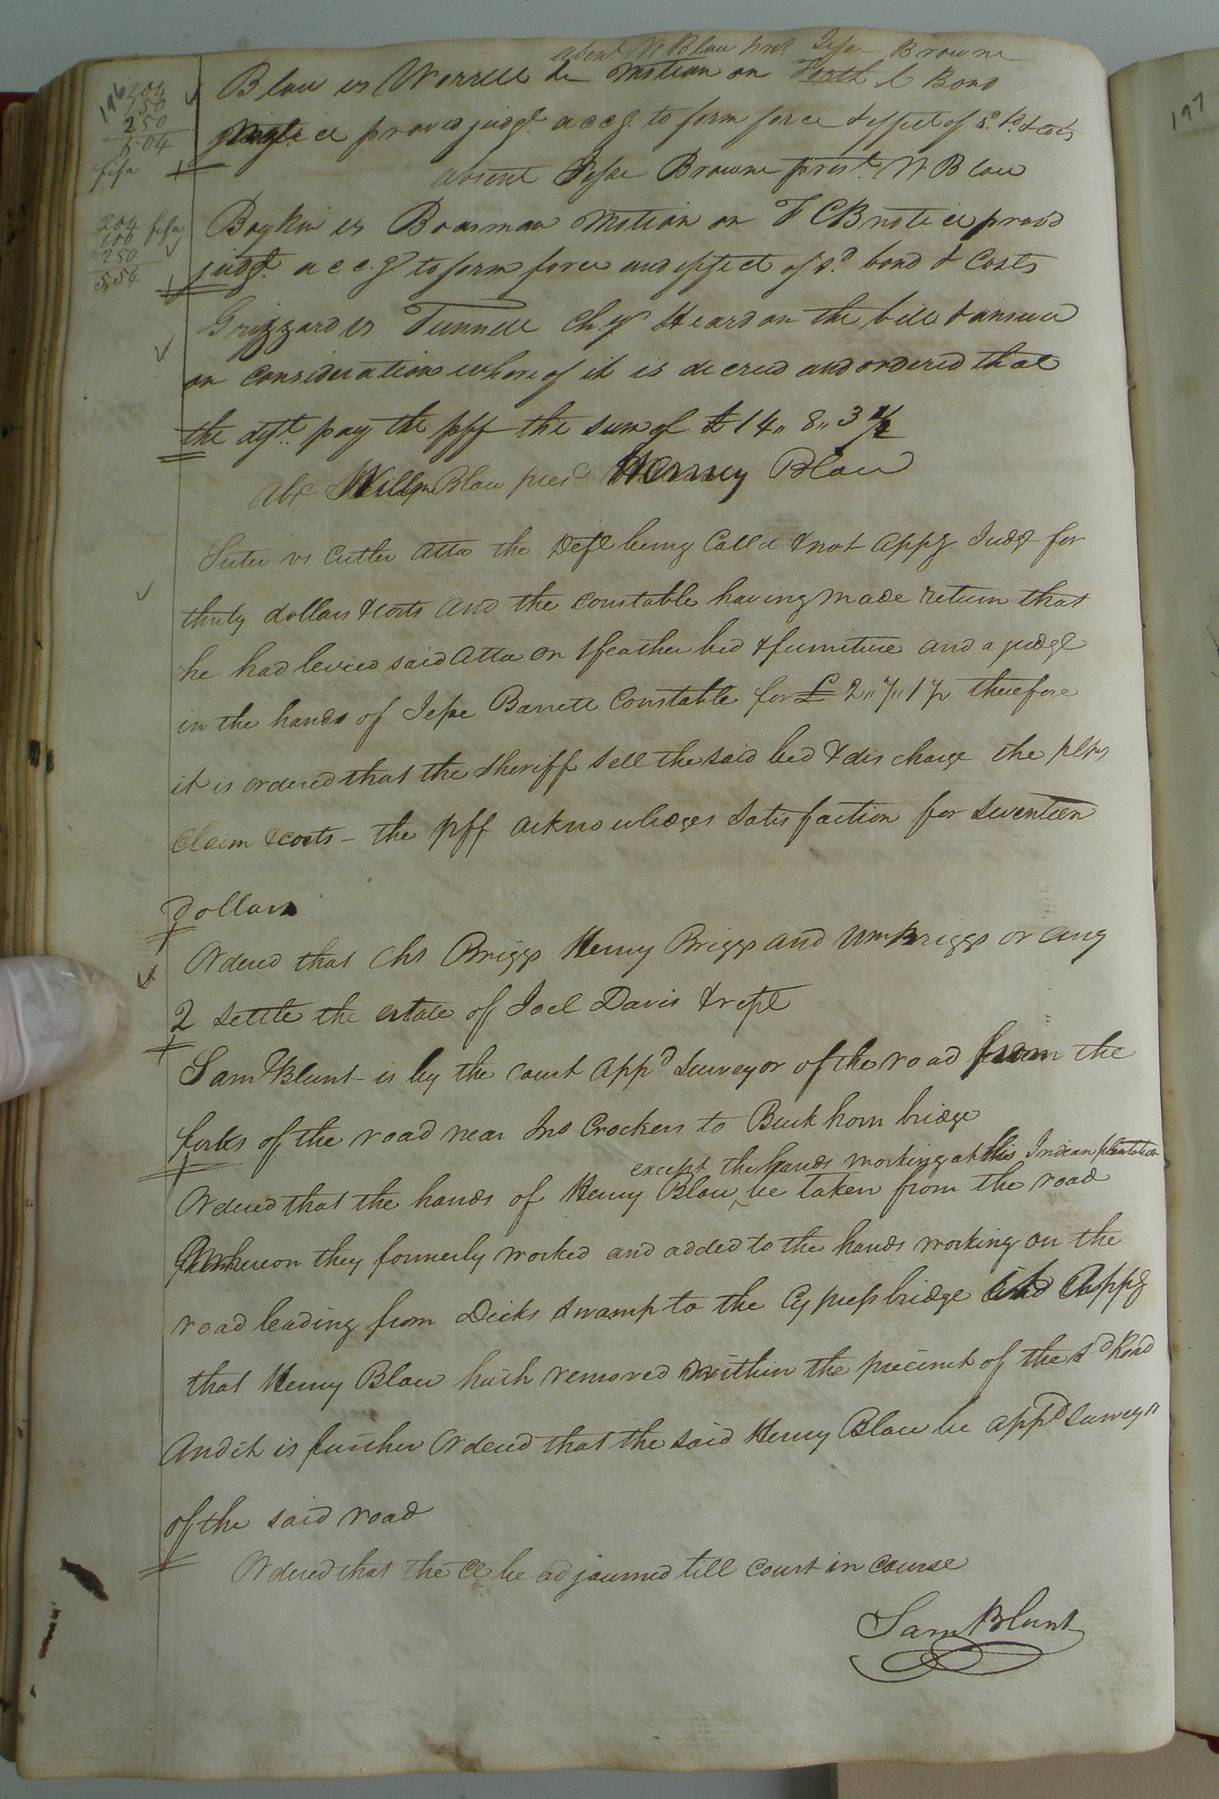 absent W Blow prest Jesse Browne
196
204
150
250
6.04
fifa
Blow vs Worrell &c Motion on Forth C Bond
notice proved judgt. accg. to form force & effect of sd. bd. & costs
absent Jesse Browne prest. W Blow
204 fifa
100
250
5.54
Boykin vs Boasman Motion on F C B notice proved
judgt. accg to form force and effect of sd. bond & Costs
Grizzard vs Tunnell Chy Heard on the bill & answer
on consideration whereof it is decreed and ordered that
the dft. pay the pff the sum of £14,, 8,, 3 1/2
Abt Willm Blow prest Henry Blow
Suter vs Cutler Atta the Deft being Called & not Appg Judgt for
thirty dollars & costs and the constable having made return that
he had levied said Atta on 1 feather bed & furniture and a judgt
in the hands of Jesse Barrett Constable for £ 2,,7,,1 1/2 therefore
it is ordered that the Sheriff sell the said bed & discharge the pltfs
Claim & costs - the pff acknowledges satisfaction for seventeen
Dollars
Ordered that Chs Briggs Henry Briggs and Wm Briggs or any
2 settle the estate of Joel Davis & rept
Saml Blunt is by the court appd Surveyor of the road from the
forks of the road near Jno Crockers to Buckhorn bridge
except the hands working at his Indian plantation
Ordered that the hands of Henry Blow ^ be taken from the road
whereon they formerly worked and added to the hands working on the
road leading from Dicks Swamp to the Cypress bridge and Appg
that Henry Blow hath removed within the precinct of the sd Road
And it is further Ordered that the said Henry Blow be appd Surveyr
of the said road
Ordered that the Ct be adjourned till court in course
Sam Blunt
197